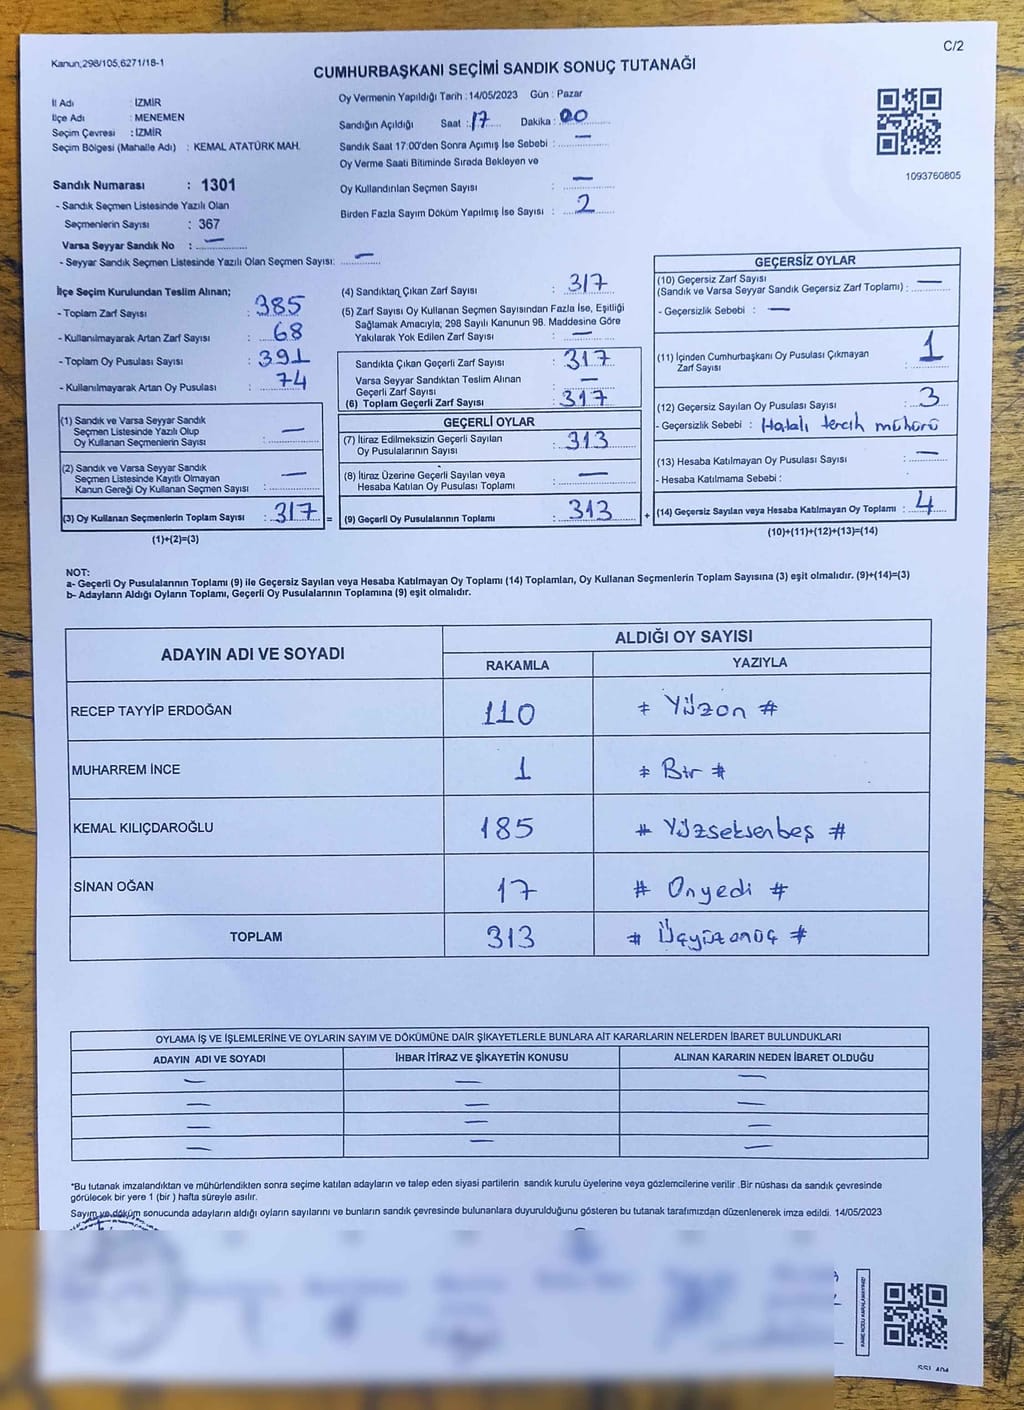 C/2
Kanun,298/105,6271/18-1
CUMHURBAŞKANI SEÇİMİ SANDIK SONUÇ TUTANAĞI
İl Adı : İZMİR
İlçe Adı : MENEMEN
Seçim Çevresi : İZMİR
Seçim Bölgesi (Mahalle Adı) : KEMAL ATATÜRK MAH.
Oy Vermenin Yapıldığı Tarih :14/05/2023 Gün : Pazar
Sandığın Açıldığı Saat : 17 Dakika : 00
Sandık Saat 17:00'den Sonra Açımış İse Sebebi : —
Oy Verme Saati Bitiminde Sırada Bekleyen ve
Oy Kullandırılan Seçmen Sayısı : —
Birden Fazla Sayım Döküm Yapılmış İse Sayısı : 2
1093760805
Sandık Numarası : 1301
- Sandık Seçmen Listesinde Yazılı Olan
Seçmenlerin Sayısı : 367
Varsa Seyyar Sandık No : —
- Seyyar Sandık Seçmen Listesinde Yazılı Olan Seçmen Sayısı: —
İlçe Seçim Kurulundan Teslim Alınan;
- Toplam Zarf Sayısı : 385
- Kullanılmayarak Artan Zarf Sayısı : 68
- Toplam Oy Pusulası Sayısı : 391
- Kullanılmayarak Artan Oy Pusulası : 74
(1) Sandık ve Varsa Seyyar Sandık
Seçmen Listesinde Yazılı Olup
Oy Kullanan Seçmenlerin Sayısı : —
(2) Sandık ve Varsa Seyyar Sandık
Seçmen Listesinde Kayıtlı Olmayan
Kanun Gereği Oy Kullanan Seçmen Sayısı : —
(3) Oy Kullanan Seçmenlerin Toplam Sayısı : 317 =
(1)+(2)=(3)
(4) Sandıktan Çıkan Zarf Sayısı : 317
(5) Zarf Sayısı Oy Kullanan Seçmen Sayısından Fazla İse, Eşitliği
Sağlamak Amacıyla; 298 Sayılı Kanunun 98. Maddesine Göre
Yakılarak Yok Edilen Zarf Sayısı : —
Sandıkta Çıkan Geçerli Zarf Sayısı : 317
Varsa Seyyar Sandıktan Teslim Alınan
Geçerli Zarf Sayısı : —
(6) Toplam Geçerli Zarf Sayısı : 317
GEÇERLİ OYLAR
(7) İtiraz Edilmeksizin Geçerli Sayılan
Oy Pusulalarının Sayısı : 313
(8) İtiraz Üzerine Geçerli Sayılan veya
Hesaba Katılan Oy Pusulası Toplamı : —
(9) Geçerli Oy Pusulalarının Toplamı : 313 +
GEÇERSİZ OYLAR
(10) Geçersiz Zarf Sayısı
(Sandık ve Varsa Seyyar Sandık Geçersiz Zarf Toplamı) : —
- Geçersizlik Sebebi : —
(11) İçinden Cumhurbaşkanı Oy Pusulası Çıkmayan
Zarf Sayısı : 1
(12) Geçersiz Sayılan Oy Pusulası Sayısı : 3
- Geçersizlik Sebebi : Hatalı tercih mühürü
(13) Hesaba Katılmayan Oy Pusulası Sayısı : —
- Hesaba Katılmama Sebebi :
(14) Geçersiz Sayılan veya Hesaba Katılmayan Oy Toplamı : 4
(10)+(11)+(12)+(13)=(14)
NOT:
a- Geçerli Oy Pusulalarının Toplamı (9) ile Geçersiz Sayılan veya Hesaba Katılmayan Oy Toplamı (14) Toplamları, Oy Kullanan Seçmenlerin Toplam Sayısına (3) eşit olmalıdır. (9)+(14)=(3)
b- Adayların Aldığı Oyların Toplamı, Geçerli Oy Pusulalarının Toplamına (9) eşit olmalıdır.
ADAYIN ADI VE SOYADI ALDIĞI OY SAYISI
RAKAMLA YAZIYLA
RECEP TAYYİP ERDOĞAN 110 # Yüzon #
MUHARREM İNCE 1 # Bir #
KEMAL KILIÇDAROĞLU 185 # Yüzseksenbeş #
SİNAN OĞAN 17 # Onyedi #
TOPLAM 313 # Üçyüzonüç #
OYLAMA İŞ VE İŞLEMLERİNE VE OYLARIN SAYIM VE DÖKÜMÜNE DAİR ŞİKAYETLERLE BUNLARA AİT KARARLARIN NELERDEN İBARET BULUNDUKLARI
ADAYIN ADI VE SOYADI İHBAR İTİRAZ VE ŞİKAYETİN KONUSU ALINAN KARARIN NEDEN İBARET OLDUĞU
— — —
— — —
— — —
— — —
*Bu tutanak imzalandıktan ve mühürlendikten sonra seçime katılan adayların ve talep eden siyasi partilerin sandık kurulu üyelerine veya gözlemcilerine verilir .Bir nüshası da sandık çevresinde
görülecek bir yere 1 (bir ) hafta süreyle asılır.
Sayım ve döküm sonucunda adayların aldığı oyların sayılarını ve bunların sandık çevresinde bulunanlara duyurulduğunu gösteren bu tutanak tarafımızdan düzenlenerek imza edildi. 14/05/2023